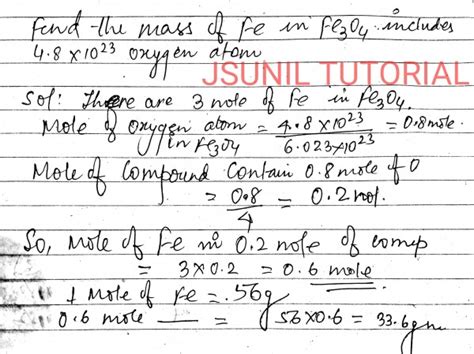 Find the mass of Fe in Fe3O4 includes
4.8 x 10²³ oxygen atom
JSUNIL TUTORIAL
Sol: There are 3 mole of Fe in Fe3O4.
Mole of oxygen atom = 4.8 x 10²³ / 6.023 x 10²³ = 0.8 mole.
in Fe3O4
Mole of Compound Contain 0.8 mole of O
= 0.8 / 4 = 0.2 mol.
So, Mole of Fe in 0.2 mole of comp
= 3 x 0.2 = 0.6 mole
1 Mole of Fe = 56g
0.6 mole — = 56 x 0.6 = 33.6 gm